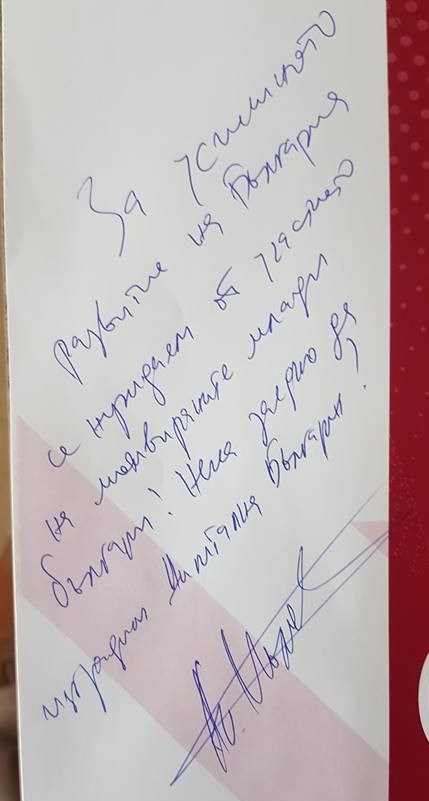 За успешното
развитие на България
се нуждаем от участието
на мотивираните млади
българи! Нека заедно да
изградим Дигитална България!